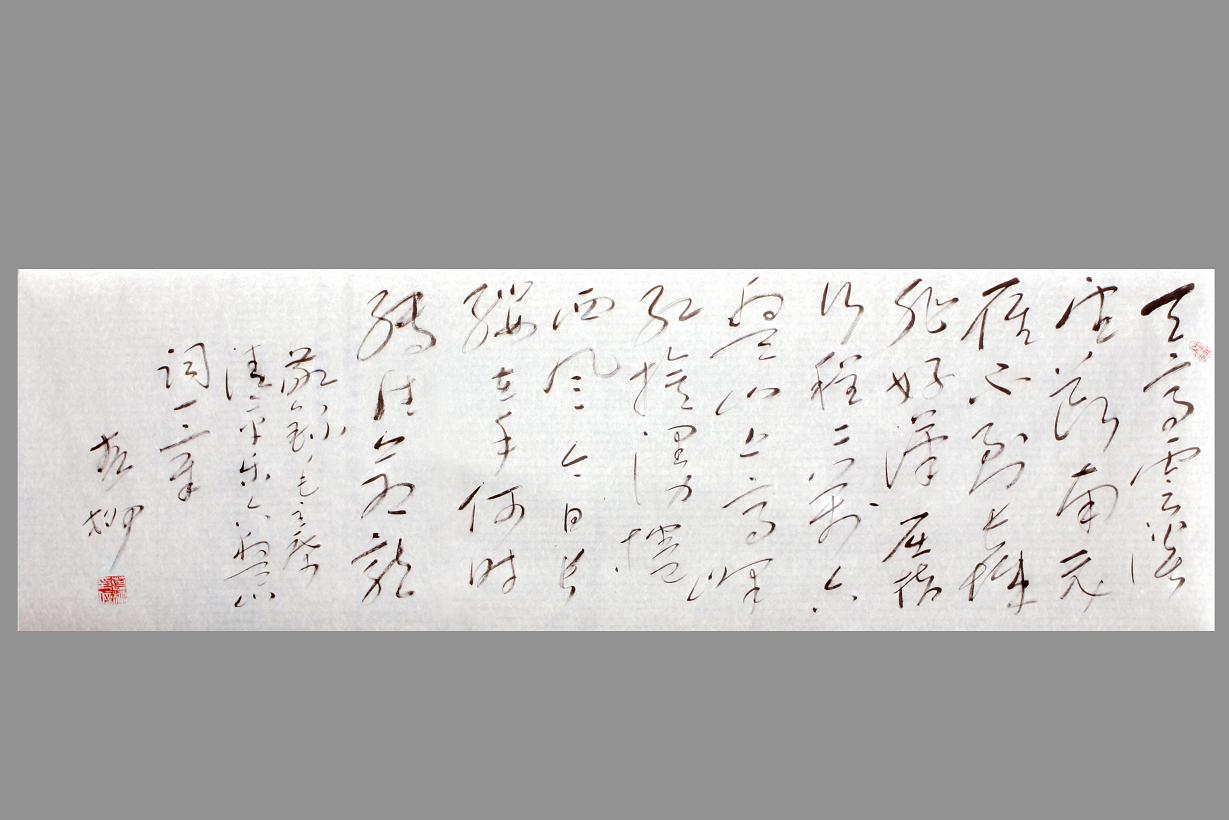 天高云淡
望断南飞
雁不到长城
非好汉屈指
行程二万六
盘山上高峰
红旗漫卷
西风今日长
缨在手何时
缚住苍龙
敬录毛主席
清平乐六盘山
词一章